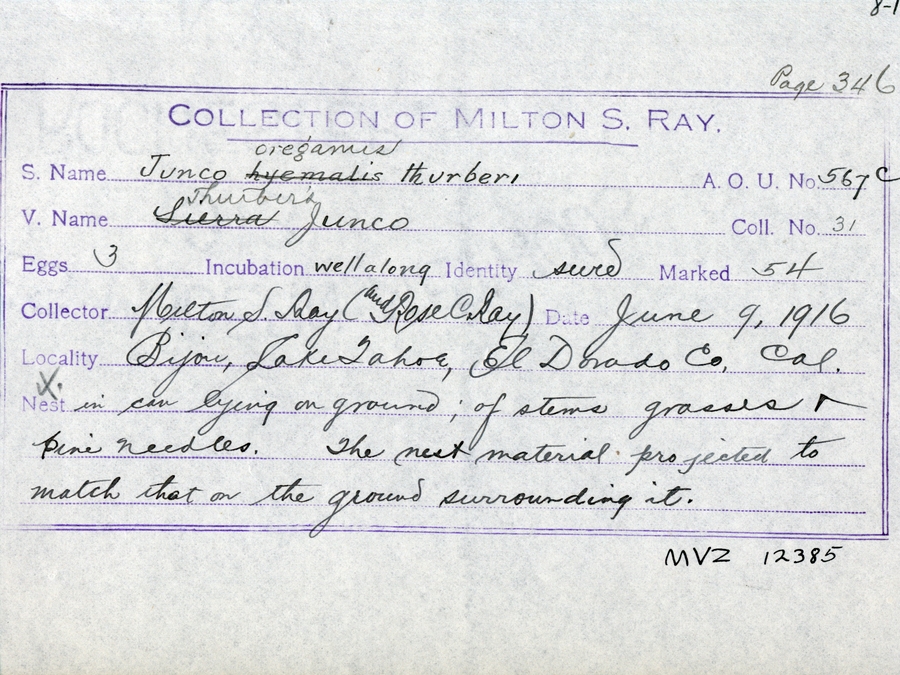 8-1
Page 346
COLLECTION OF MILTON S. RAY.
oreganus
S. Name Junco hyemalis thurberi A. O. U. No. 567c
Thurber's
V. Name Sierra Junco Coll. No. 31
Eggs 3 Incubation well along Identity sure Marked 54
Collector Milton S. Ray (and Rose C. Ray) Date June 9, 1916
Locality Bijou, Lake Tahoe, El Dorado Co, Cal.
X.
Nest in can lying on ground; of stems grasses &
pine needles. The nest material projected to
match that on the ground surrounding it.
MVZ 12385